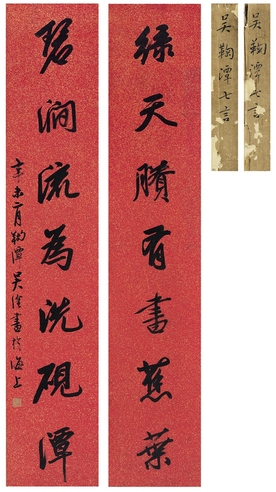 緑天賸有書蕉葉
碧澗流為洗硯潭
辛未二月鞠潭吳淦書於海上
吳鞠潭七言
吳鞠潭七言